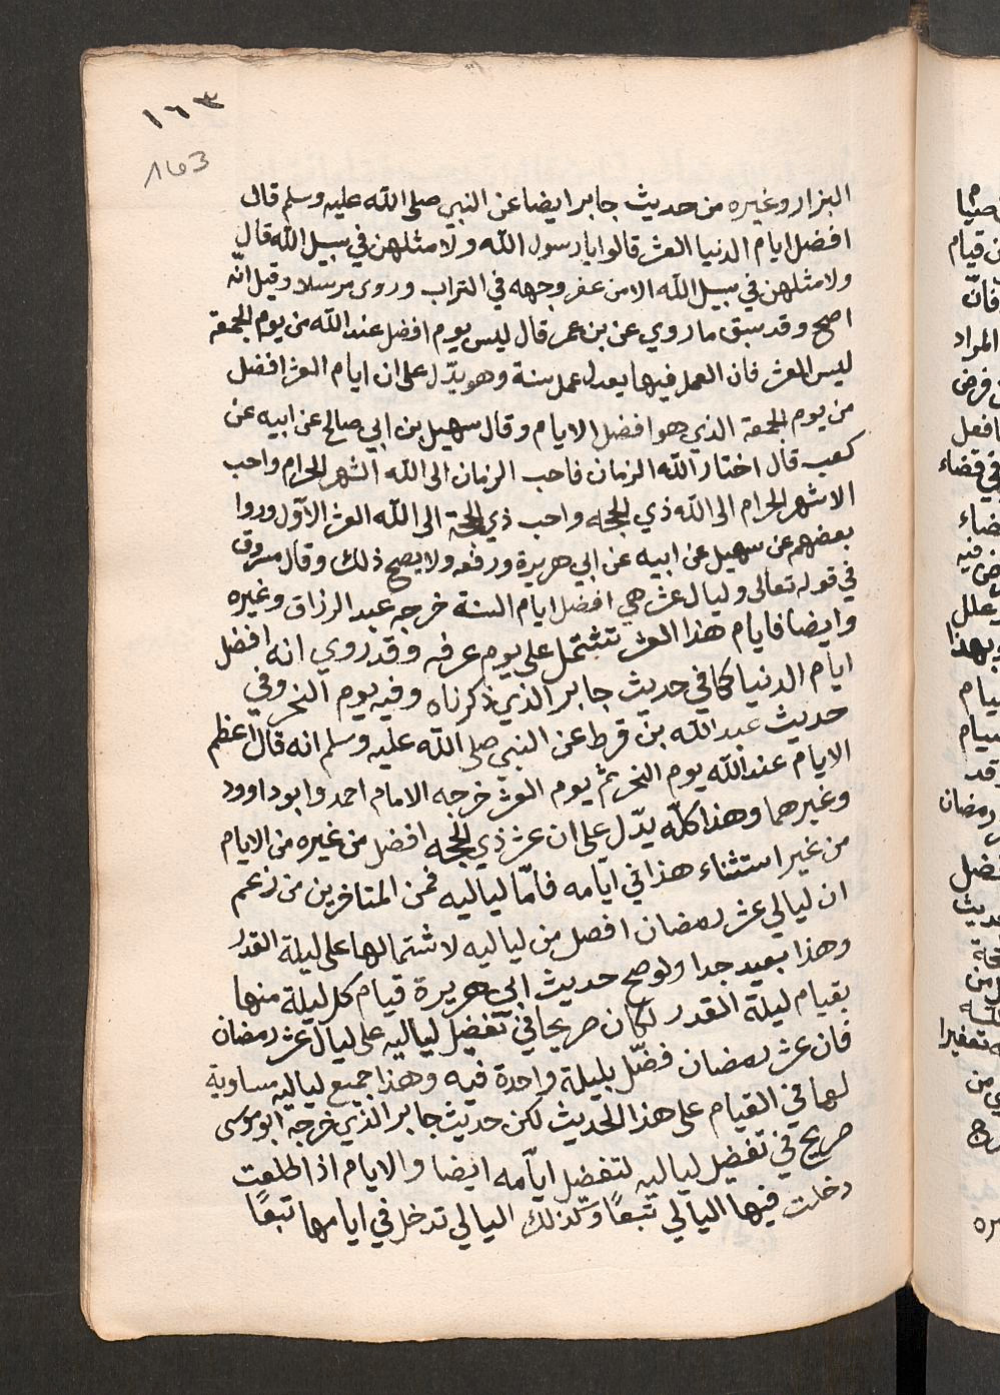 ١٦٣
163
البزار وغيره من حديث جابر ايضا عن النبي صلى الله عليه وسلم قال
افضل ايام الدنيا العشر قالوا يا رسول الله ولا مثلهن في سبيل الله قال
ولا مثلهن في سبيل الله الا من عفر وجهه في التراب وروي مرسلا وقيل انّه
اصح وقد سبق ما روي عن بن عمر قال ليس يوم افضل عند الله من يوم الجمعة
ليس العشر فان العمل فيها يعدل عمل سنة وهو يدّل على ان ايام العشر افضل
من يوم الجمعة الذي هو افضل الايام وقال سهيل بن ابي صالح عن ابيه عن
كعب قال اختار الله الزمان فاحب الزمان الى الله الشهر الحرام واحب
الاشهر الحرام الى الله ذي الحجه واحب ذي الحجة الى الله العشر الاول وروا
بعضهم عن سهيل عن ابيه عن ابي هريرة ورفعه ولا يصح ذلك وقال مسروق
في قوله تعالى وليال عشر هي افضل ايام السنة خرجه عبد الرزاق وغيره
وايضا فايام هذا العشر تشتمل على يوم عرفه وقد روي انه افضل
ايام الدنيا كما في حديث جابر الذي ذكرناه وفيه يوم النحر وفي
حديث عبد الله بن قرط عن النبي صلى الله عليه وسلم انه قال اعظم
الايام عند الله يوم النحر ثم يوم العشر خرجه الامام احمد وابو داوود
وغيرهما وهذا كلّه يدّل على ان عشر ذي الحجه افضل من غيره من الايام
من غير استثناء هذا في ايامه فامّا لياليه فمن المتاخرين من زعم
ان ليالي عشر رمضان افضل من لياليه لاشتمالها على ليلة القدر
وهذا بعيد جدا ولو صح حديث ابي هريرة قيام كل ليلة منها
بقيام ليلة القدر لكان صريحا في تفضيل لياليه على ليال عشر رمضان
فان عشر رمضان فضّل بليلة واحدة فيه وهذا جميع لياليه مساوية
لها في القيام على هذا الحديث لكن حديث جابر الذي خرجه ابو موسى
صريح في تفضيل لياليه لتفضيل ايامه ايضا والايام اذا اطلقت
دخلت فيها اليالي تبعًا وكذلك اليالي تدخل في ايامها تبعًا